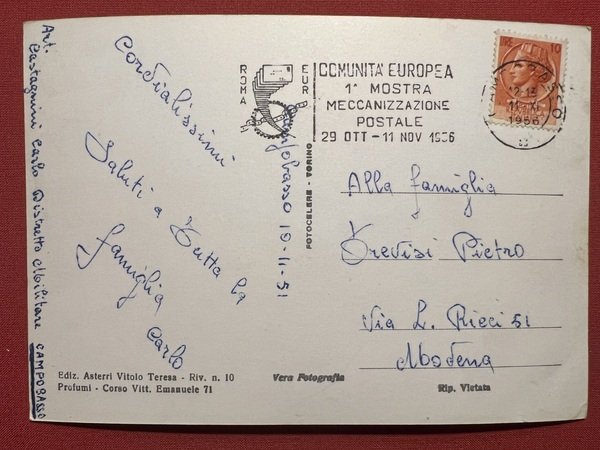 Art.
Castagnini Carlo Distretto Militare CAMPOBASSO
Cordialissimi
Saluti a tutta la
famiglia
Carlo
Campobasso 10-11-51
ROMA
EUR
COMUNITA' EUROPEA
1ª MOSTRA
MECCANIZZAZIONE
POSTALE
29 OTT - 11 NOV 1956
LIRE 10
1956
FOTOCELERE - TORINO
Alla famiglia
Trevisi Pietro
Via L. Ricci 51
Modena
Ediz. Asterri Vitolo Teresa - Riv. n. 10
Profumi - Corso Vitt. Emanuele 71
Vera Fotografia
Rip. Vietata